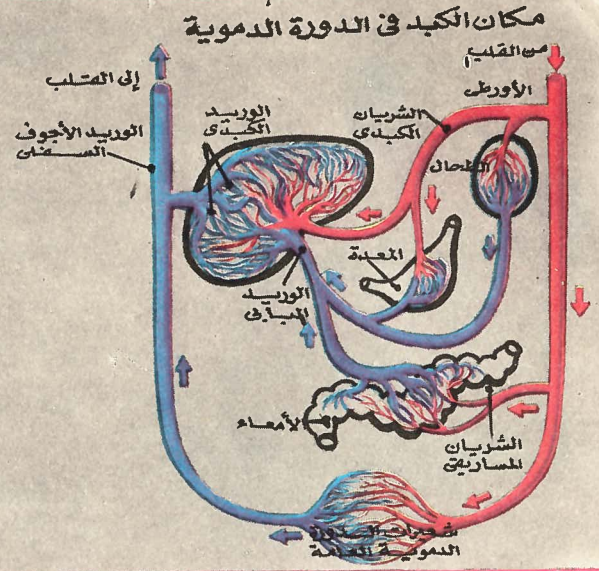 مكان الكبد في الدورة الدموية
من القلب
إلى القلب
الأورطى
الوريد
الكبدى
الشريان
الكبدى
الوريد الأجوف
السفلى
الطحال
المعدة
الوريد
البابى
الأمعاء
الشريان
المساريقى
شعيرات الدورة
الدموية العامة